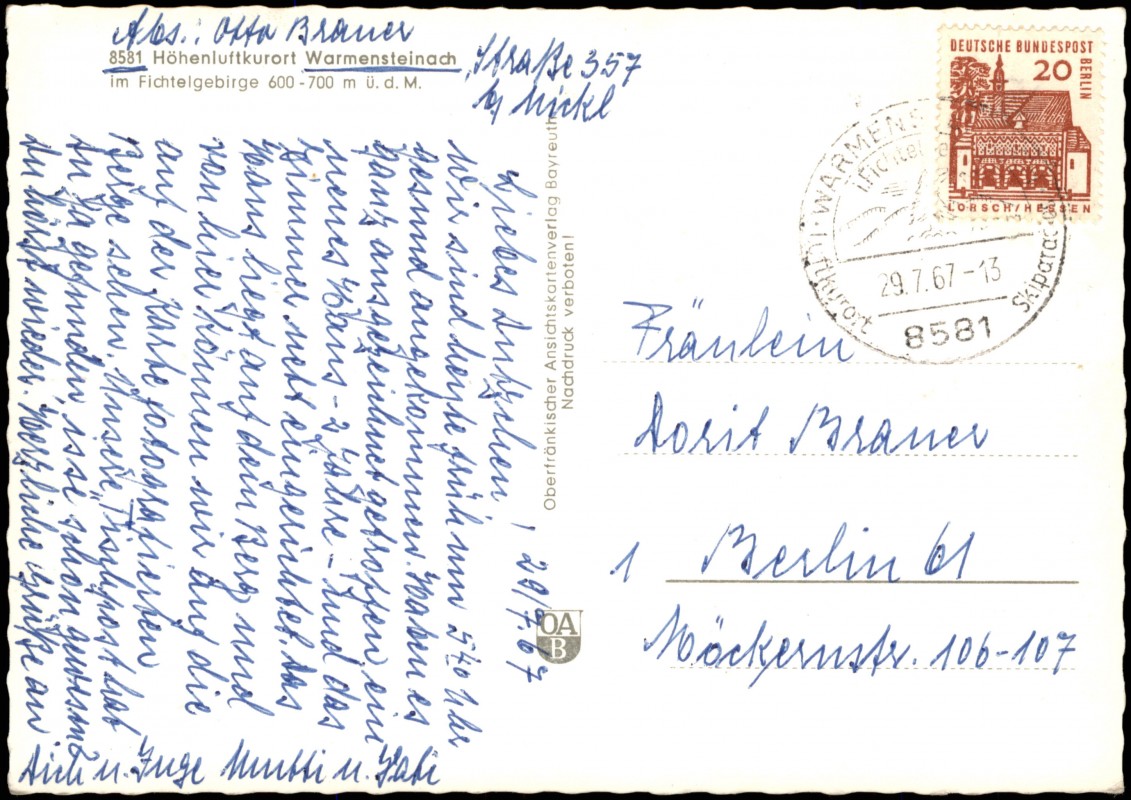 Abs.: Otto Brauer
8581 Höhenluftkurort Warmensteinach
im Fichtelgebirge 600-700 m ü.d.M.
Straße 357
b/ Nickl
Liebes Dutzchen! 29/7.67
Wir sind heute früh um 5 40 Uhr
gesund angekommen. Haben es
ganz ausgezeichnet getroffen ein
neues Haus - 2 Jahre - und das
Zimmer nett eingerichtet das
Haus liegt auf dem Berg und
von hier können wir Aug die
auf der Karte fotografierten
Berge sehen. Unsere Tischpost hat
Du hörst wieder. Herzliche Grüße an
Dich u. Inge Mutti u. Vati
Oberfränkischer Ansichtskartenverlag Bayreuth
Nachdruck verboten!
OA
B
DEUTSCHE BUNDESPOST
BERLIN
20
LORSCH/HESSEN
WARMENS
(Fichtel
29.7.67-13
8581
Luftkurort
Skiparad
Fräulein
Dorit Brauer
1 Berlin 61
Möckernstr. 106-107